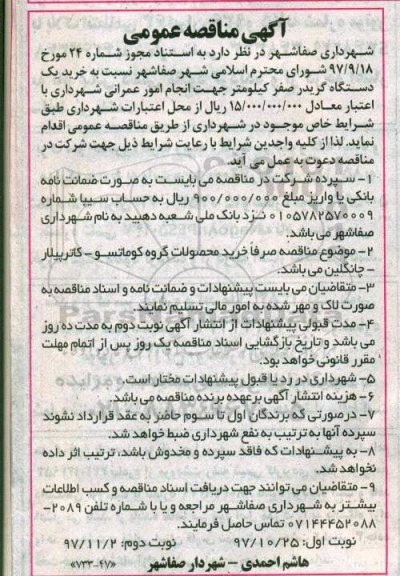 آگهی مناقصه عمومی
شهرداری صفاشهر در نظر دارد به استناد مجوز شماره ۲۴ مورخ
۹۷/۹/۱۸ شورای محترم اسلامی شهر صفاشهر نسبت به خرید یک
دستگاه گریدر صفر کیلومتر جهت انجام امور عمرانی شهرداری با
اعتبار معادل ۱۵/۰۰۰/۰۰۰/۰۰۰ ریال از محل اعتبارات شهرداری طبق
شرایط خاص موجود در شهرداری از طریق مناقصه عمومی اقدام
نماید. لذا از کلیه واجدین شرایط با رعایت شرایط ذیل جهت شرکت در
مناقصه دعوت به عمل می آید.
۱- سپرده شرکت در مناقصه می بایست به صورت ضمانت نامه
بانکی یا واریز مبلغ ۹۰۰/۰۰۰/۰۰۰ ریال به حساب سیبا شماره
۰۱۰۵۷۸۲۵۷۰۰۰۹ نزد بانک ملی شعبه دهبید به نام شهرداری
صفاشهر می باشد.
۲- موضوع مناقصه صرفا خرید محصولات گروه کوماتسو - کاترپیلار
- چانگلین می باشد.
۳- متقاضیان می بایست پیشنهادات و ضمانت نامه و اسناد مناقصه به
صورت لاک و مهر شده به امور مالی تسلیم نمایند.
۴- مدت قبولی پیشنهادات از انتشار آگهی نوبت دوم به مدت ده روز
می باشد و تاریخ بازگشایی اسناد مناقصه یک روز پس از اتمام مهلت
مقرر قانونی خواهد بود.
۵- شهرداری در رد یا قبول پیشنهادات مختار است.
۶- هزینه انتشار آگهی بر عهده برنده مناقصه می باشد.
۷- در صورتی که برندگان اول تا سوم حاضر به عقد قرارداد نشوند
سپرده آنها به ترتیب به نفع شهرداری ضبط خواهد شد.
۸- به پیشنهادات که فاقد سپرده و مخدوش باشد، ترتیب اثر داده
نخواهد شد.
۹- متقاضیان می توانند جهت دریافت اسناد مناقصه و کسب اطلاعات
بیشتر به شهرداری صفاشهر مراجعه و یا با شماره تلفن ۲۰۸۹-
۰۷۱۴۴۴۵۲۰۸۸ تماس حاصل فرمایند.
نوبت اول: ۹۷/۱۰/۲۵ نوبت دوم: ۹۷/۱۱/۲
هاشم احمدی - شهردار صفاشهر «۷۳۳-۴۷»